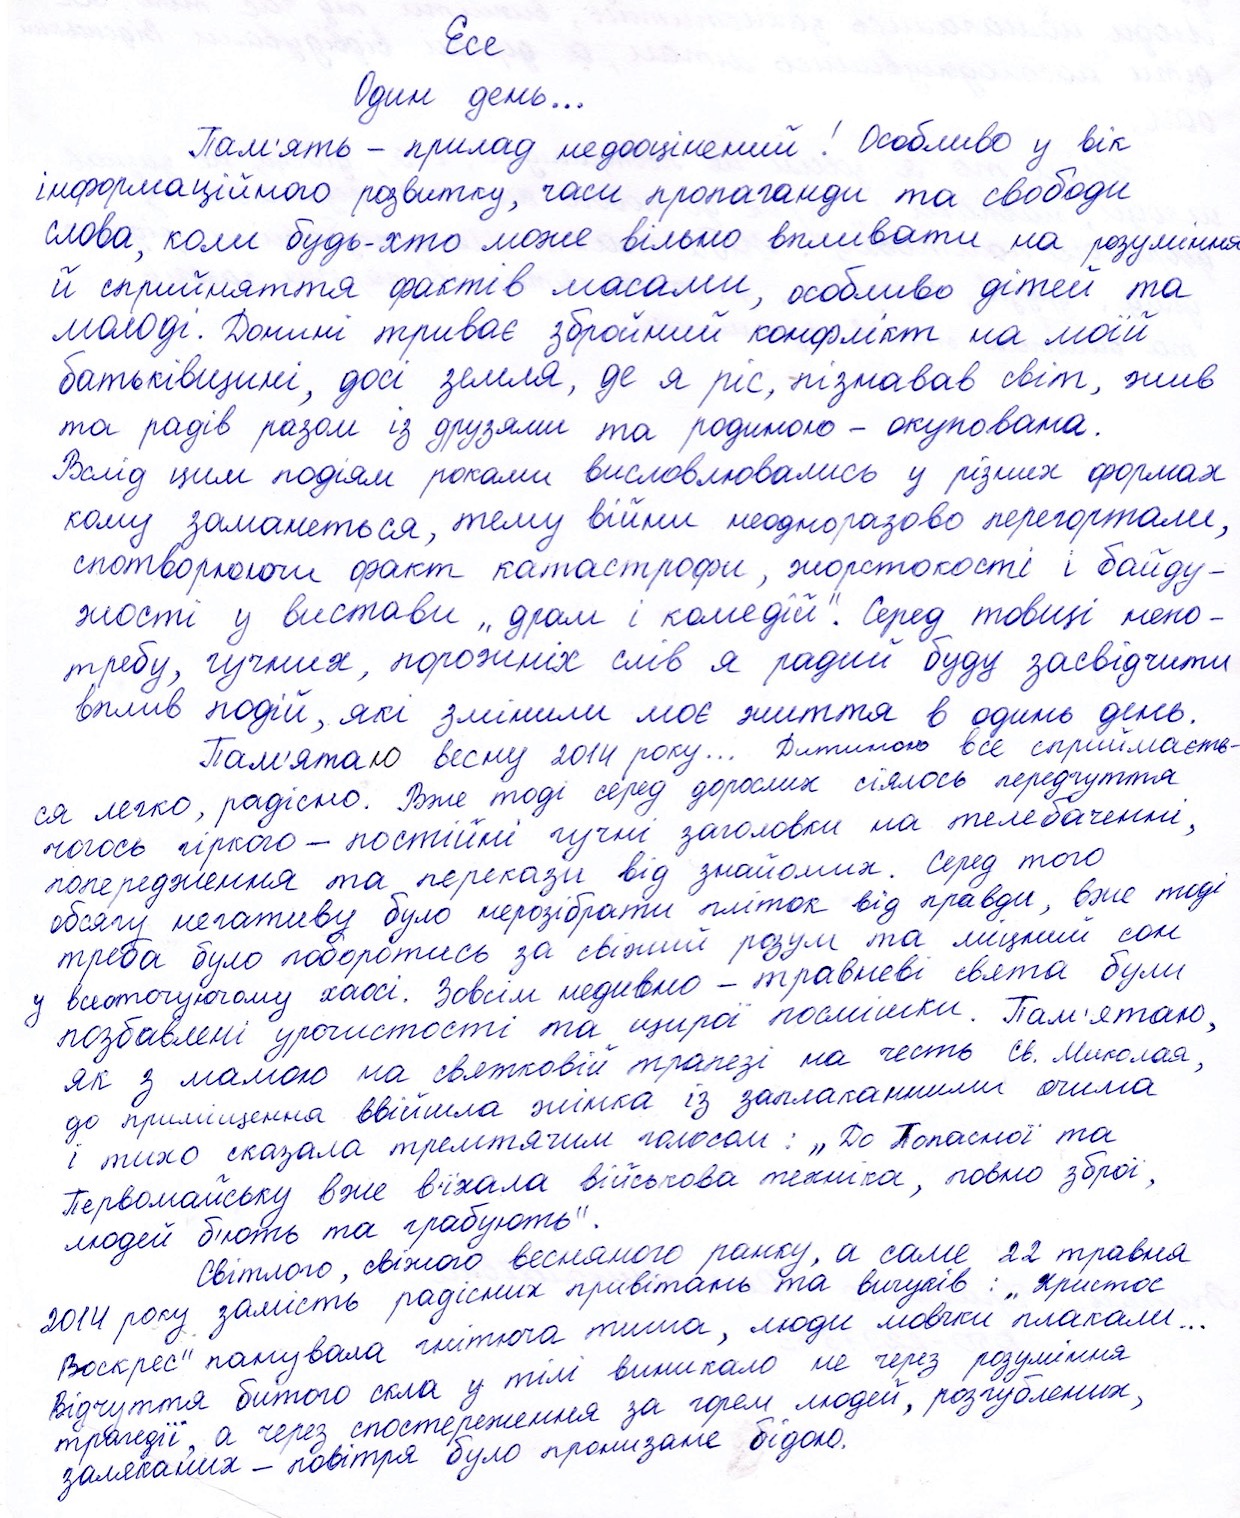 Есе
Один день...
Пам'ять – прилад недооцінений! Особливо у вік
інформаційного розвитку, часи пропаганди та свободи
слова, коли будь-хто може вільно впливати на розуміння
й сприйняття фактів масами, особливо дітей та
молоді. Донині триває збройний конфлікт на моїй
батьківщині, досі земля, де я ріс, пізнавав світ, жив
та радів разом із друзями та родиною – окупована.
Вслід цим подіям роками висловлювались у різних формах
кому заманеться, тему війни неодноразово перегортали,
спотворюючи факт катастрофи, жорстокості і байду-
жості у вистави „драм і комедій". Серед товщі непо-
требу, гучних, порожніх слів я радий буду засвідчити
вплив подій, які змінили моє життя в одинь день.
Пам'ятаю весну 2014 року... Дитиною все сприймаєть-
ся легко, радісно. Вже тоді серед дорослих сіялось передчуття
чогось гіркого – постійні гучні заголовки на телебаченні,
попередження та перекази від знайомих. Серед того
обсягу негативу було нерозібрати пліток від правди, вже тоді
треба було поборотись за свіжий розум та міцний сон
у всеоточуючому хаосі. Зовсім недивно – травневі свята були
позбавлені урочистості та щирої посмішки. Пам'ятаю,
як з мамою на святковій трапезі на честь Св. Миколая,
до приміщення ввійшла жінка із заплаканними очима
і тихо сказала тремтячим голосом: „До Попасної та
Первомайську вже в'їхала військова техніка, повно зброї,
людей б'ють та грабують".
Світлого, свіжого весняного ранку, а саме 22 травня
2014 року замість радісних привітань та вигуків: „Христос
Воскрес" панувала гнітюча тиша, люди мовчки плакали...
Відчуття битого скла у тілі виникало не через розуміння
трагедії, а через спостереження за горем людей, розгублених,
заляканих – повітря було пронизане бідою.